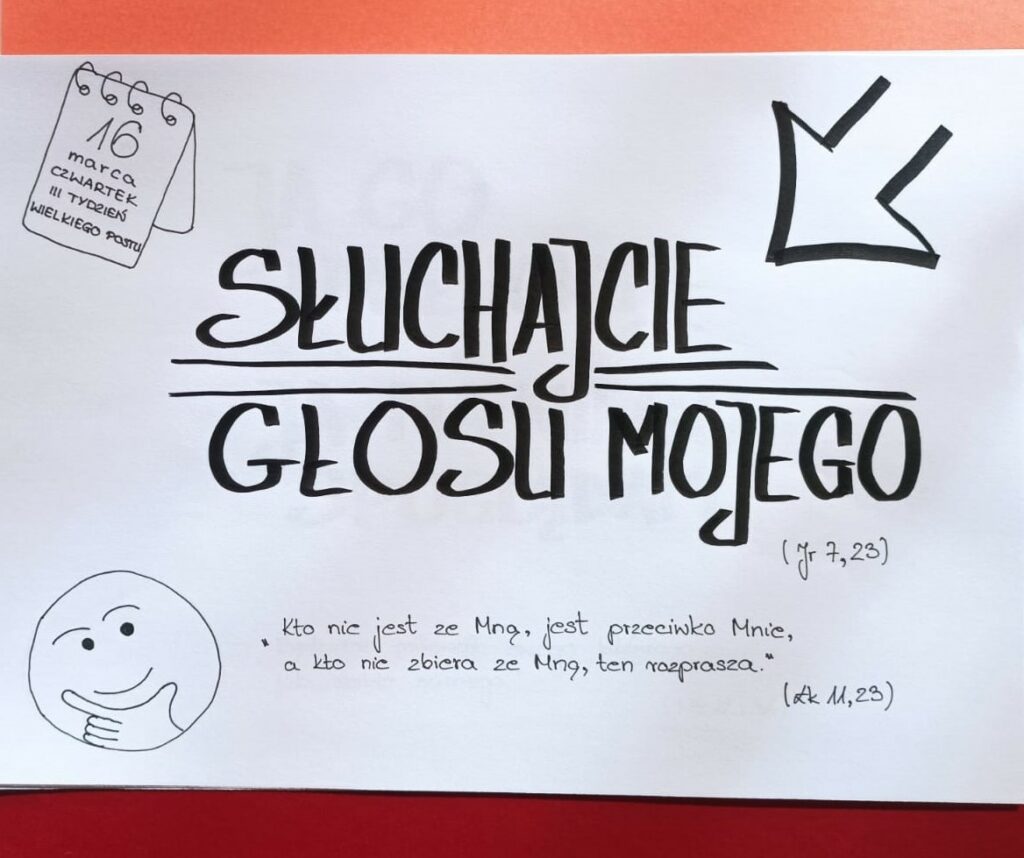 16
marca
CZWARTEK
III TYDZIEŃ
WIELKIEGO POSTU
SŁUCHAJCIE
GŁOSU MOJEGO
(Jr 7,23)
„Kto nie jest ze Mną, jest przeciwko Mnie,
a kto nie zbiera ze Mną, ten rozprasza."
(Łk 11,23)